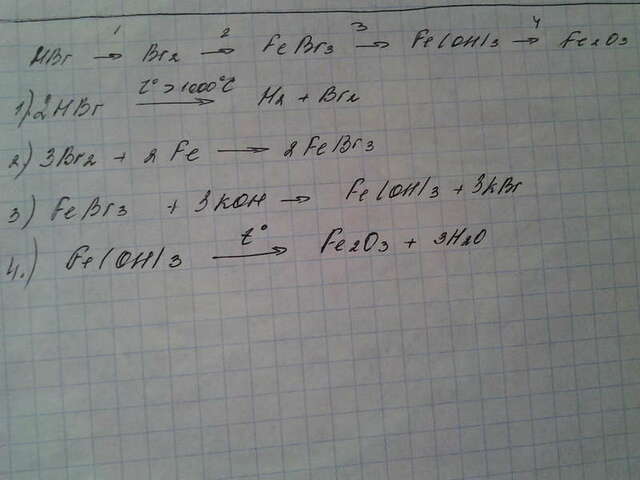 HBr →¹ Br2 →² FeBr3 →³ Fe(OH)3 →⁴ Fe2O3
1) 2HBr t°>1000°C → H2 + Br2
2) 3Br2 + 2Fe → 2FeBr3
3) FeBr3 + 3KOH → Fe(OH)3 + 3KBr
4.) Fe(OH)3 t° → Fe2O3 + 3H2O